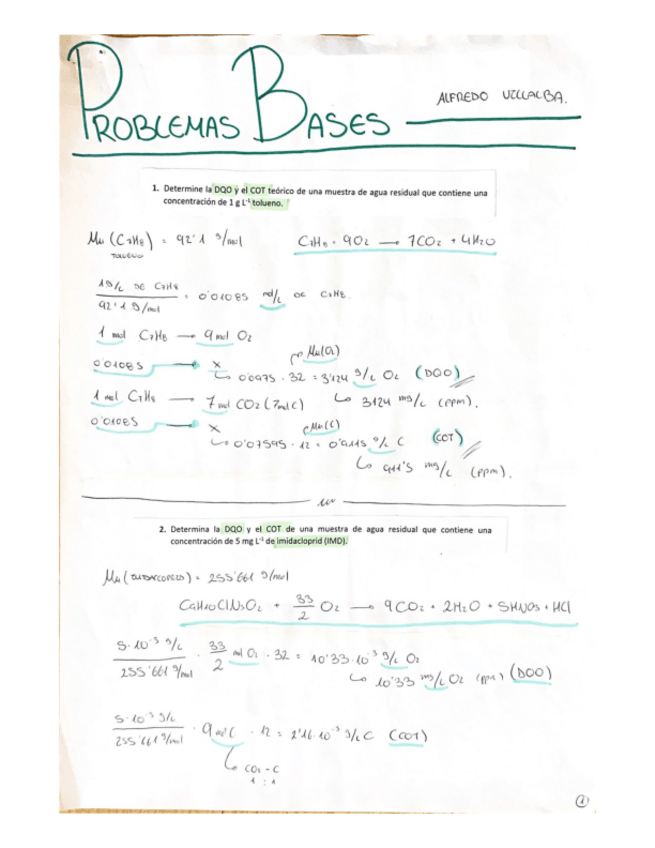 PROBLEMAS BASES
ALFREDO VILLALBA.
1. Determine la DQO y el COT teórico de una muestra de agua residual que contiene una
concentración de 1 g L⁻¹ tolueno.
Mu (C7H8) = 92'1 g/mol
C7H8 + 9O2 → 7CO2 + 4H2O
TOLUENO
1 g/L DE C7H8
92'1 g/mol
= 0'01085 mol/L DE C7H8.
1 mol C7H8 → 9 mol O2
Mu(O2)
0'01085 → x
↳ 0'0975 · 32 = 3'124 g/L O2 (DQO)
1 mol C7H8 → 7 mol CO2 (7 mol C)
↳ 3124 mg/L (ppm).
0'01085 → x
Mu(C)
↳ 0'07595 · 12 = 0'9115 g/L C (COT)
↳ 911'5 mg/L (ppm).
2. Determina la DQO y el COT de una muestra de agua residual que contiene una
concentración de 5 mg L⁻¹ de imidacloprid (IMD).
= 255'661 g/mol
C9H10ClN5O2 + 33/2 O2 → 9CO2 + 2H2O + 5HNO3 + HCl
5·10⁻³ g/L
255'661 g/mol
· 33/2 mol O2 · 32 = 10'33·10⁻³ g/L O2
↳ 10'33 mg/L O2 (ppm) (DQO)
5·10⁻³ g/L
255'661 g/mol
· 9 mol C · 12 = 2'16·10⁻³ g/L C (COT)
↳ CO2 - C
1 : 1
1